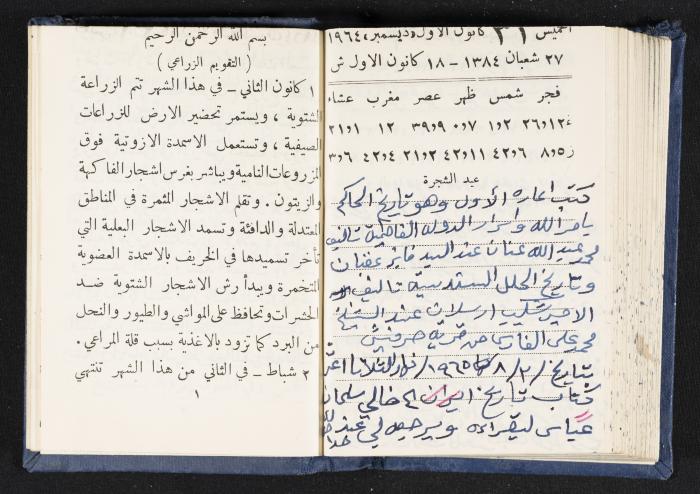 الخميس ٣١ كانون الاول «ديسمبر» ١٩٦٤
٢٧ شعبان ١٣٨٤ - ١٨ كانون الاول ش
فجر شمس ظهر عصر مغرب عشاء
١٢ ٣٩و٩ ١٢ ٢١و١
٤٢و٦ ٤٢و١١ ٢١و٢ ٤٢و٤ ٣و٦
عيد الشجرة
كتب اعاره الأول وهو تاريخ الحاكم
بامر الله واسرار الدوله الفاطمية تاليف
محمد عبد الله عنان عند السيد فايز عفنان
وتاريخ الحلل السندسية تاليف
الامير شكيب ارسلان عند الشيخ
محمد علي الفارس من قرية
بتاريخ ٨/٢/١٩٦٥ نهار الثلاثا
كتاب تاريخ ايران الى خالي سلمان
عباس ليقراءه ويرجعه لي عند
بسم الله الرحمن الرحيم
( التقويم الزراعي )
١ كانون الثاني ـ في هذا الشهر تتم الزراعة
الشتوية ، ويستمر تحضير الارض للزراعات
الصيفية ، وتستعمل الاسمدة الازوتية فوق
المزروعات النامية ويباشر بغرس اشجار الفاكهة
والزيتون . وتقلم الاشجار المثمرة في المناطق
المعتدلة والدافئة وتسمد الاشجار البعلية التي
تأخر تسميدها في الخريف بالاسمدة العضوية
المتخمرة ويبدأ رش الاشجار الشتوية ضد
الحشرات وتحافظ على المواشي والطيور والنحل
من البرد كما تزود بالاغذية بسبب قلة المراعي.
٢ شباط ـ في الثاني من هذا الشهر تنتهي
١